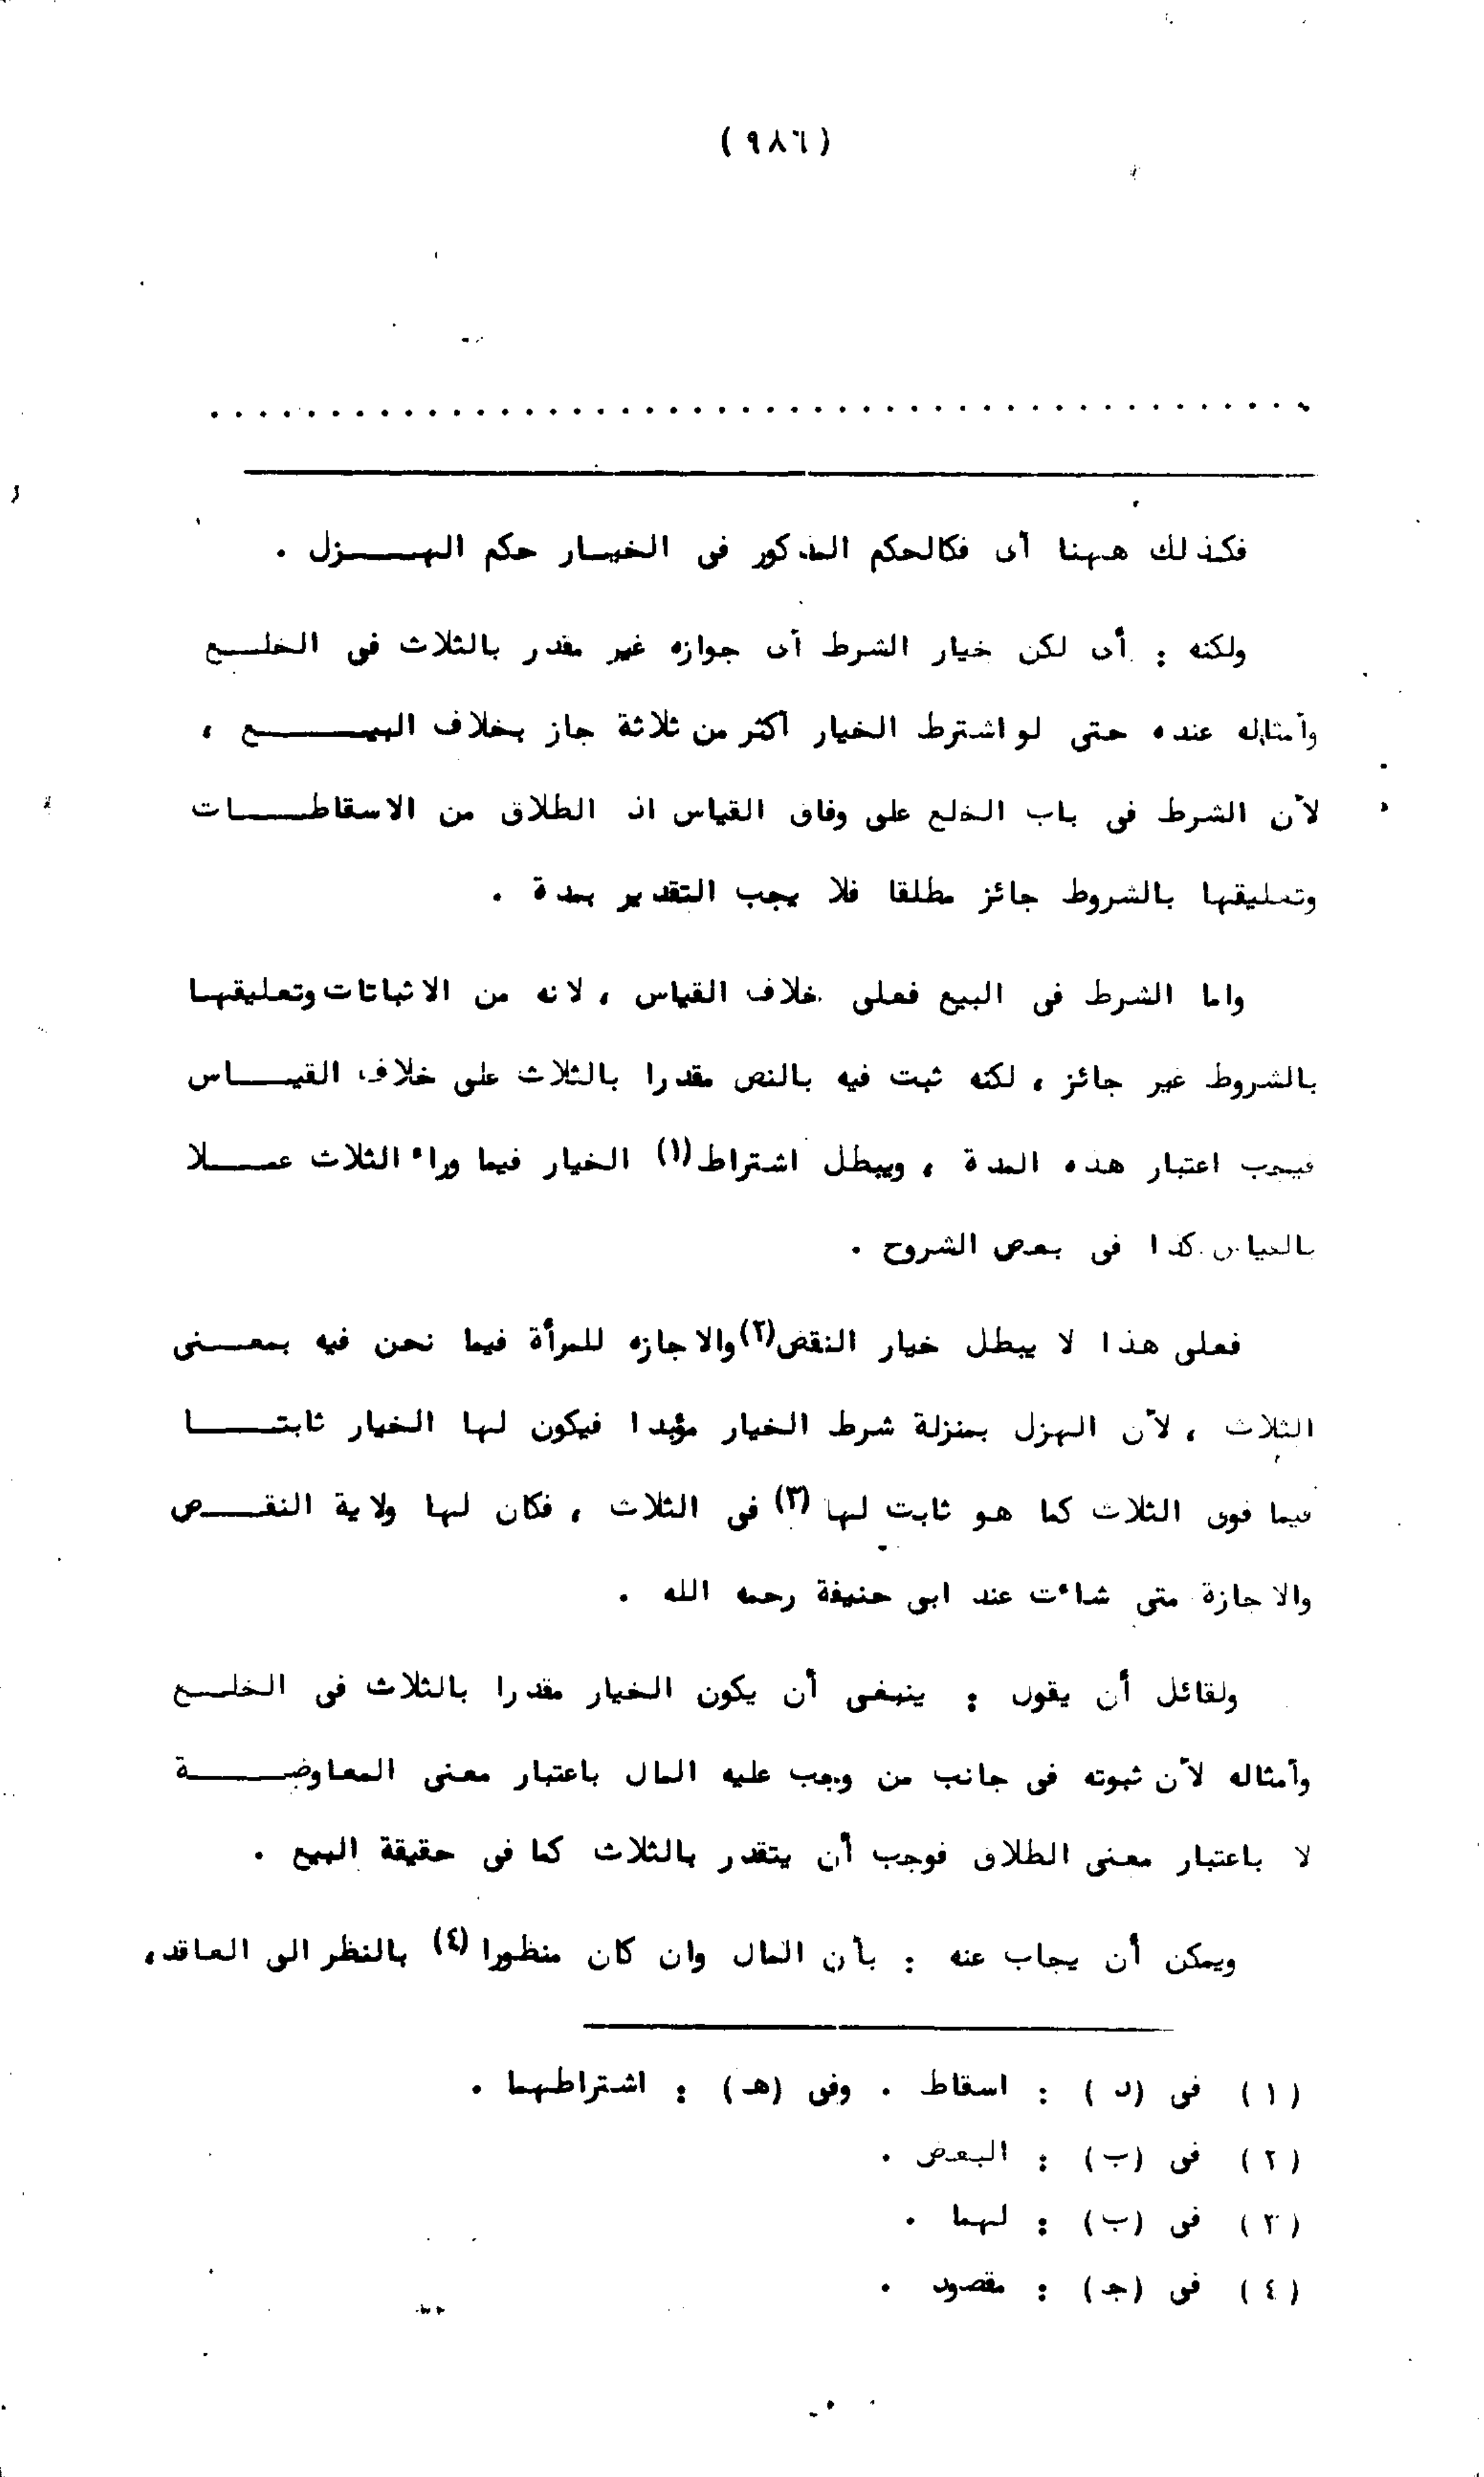 (٩٨٦)
. . . . . . . . . . . . . . . . . . . . . . . . . . . . . . . . . . . . . . . . . . . . . .
فكذلك ههنا أى فكالحكم المذكور فى الخيار حكم الهزل .
ولكنه : أى لكن خيار الشرط أى جوازه غير مقدر بالثلاث فى الخلع
وأمثاله عنده حتى لو اشترط الخيار أكثر من ثلاثة جاز بخلاف البيع ،
لأن الشرط فى باب الخلع على وفاق القياس اذ الطلاق من الاسقاطات
وتعليقها بالشروط جائز مطلقا فلا يجب التقدير بمدة .
واما الشرط فى البيع فعلى خلاف القياس ، لانه من الاثباتات وتعليقها
بالشروط غير جائز ، لكنه ثبت فيه بالنص مقدرا بالثلاث على خلاف القياس
فيجب اعتبار هذه المدة ، ويبطل اشتراط (١) الخيار فيما وراء الثلاث عملا
بالقياس كذا فى بعض الشروح .
فعلى هذا لا يبطل خيار النقض (٢) والاجازه للمرأة فيما نحن فيه بمعنى
الثلاث ، لأن الهزل بمنزلة شرط الخيار مؤبدا فيكون لها الخيار ثابتا
فيما فوق الثلاث كما هو ثابت لها (٣) فى الثلاث ، فكان لها ولاية النقض
والاجازة متى شاءت عند ابى حنيفة رحمه الله .
ولقائل أن يقول : ينبغى أن يكون الخيار مقدرا بالثلاث فى الخلع
وأمثاله لأن ثبوته فى جانب من وجب عليه المال باعتبار معنى المعاوضة
لا باعتبار معنى الطلاق فوجب أن يتقدر بالثلاث كما فى حقيقة البيع .
ويمكن أن يجاب عنه : بأن المال وان كان منظورا (٤) بالنظر الى العاقد،
(١) فى (د) : اسقاط . وفى (هـ) : اشتراطهما .
(٢) فى (ب) : البعض .
(٣) فى (ب) : لهما .
(٤) فى (جـ) : مقصود .